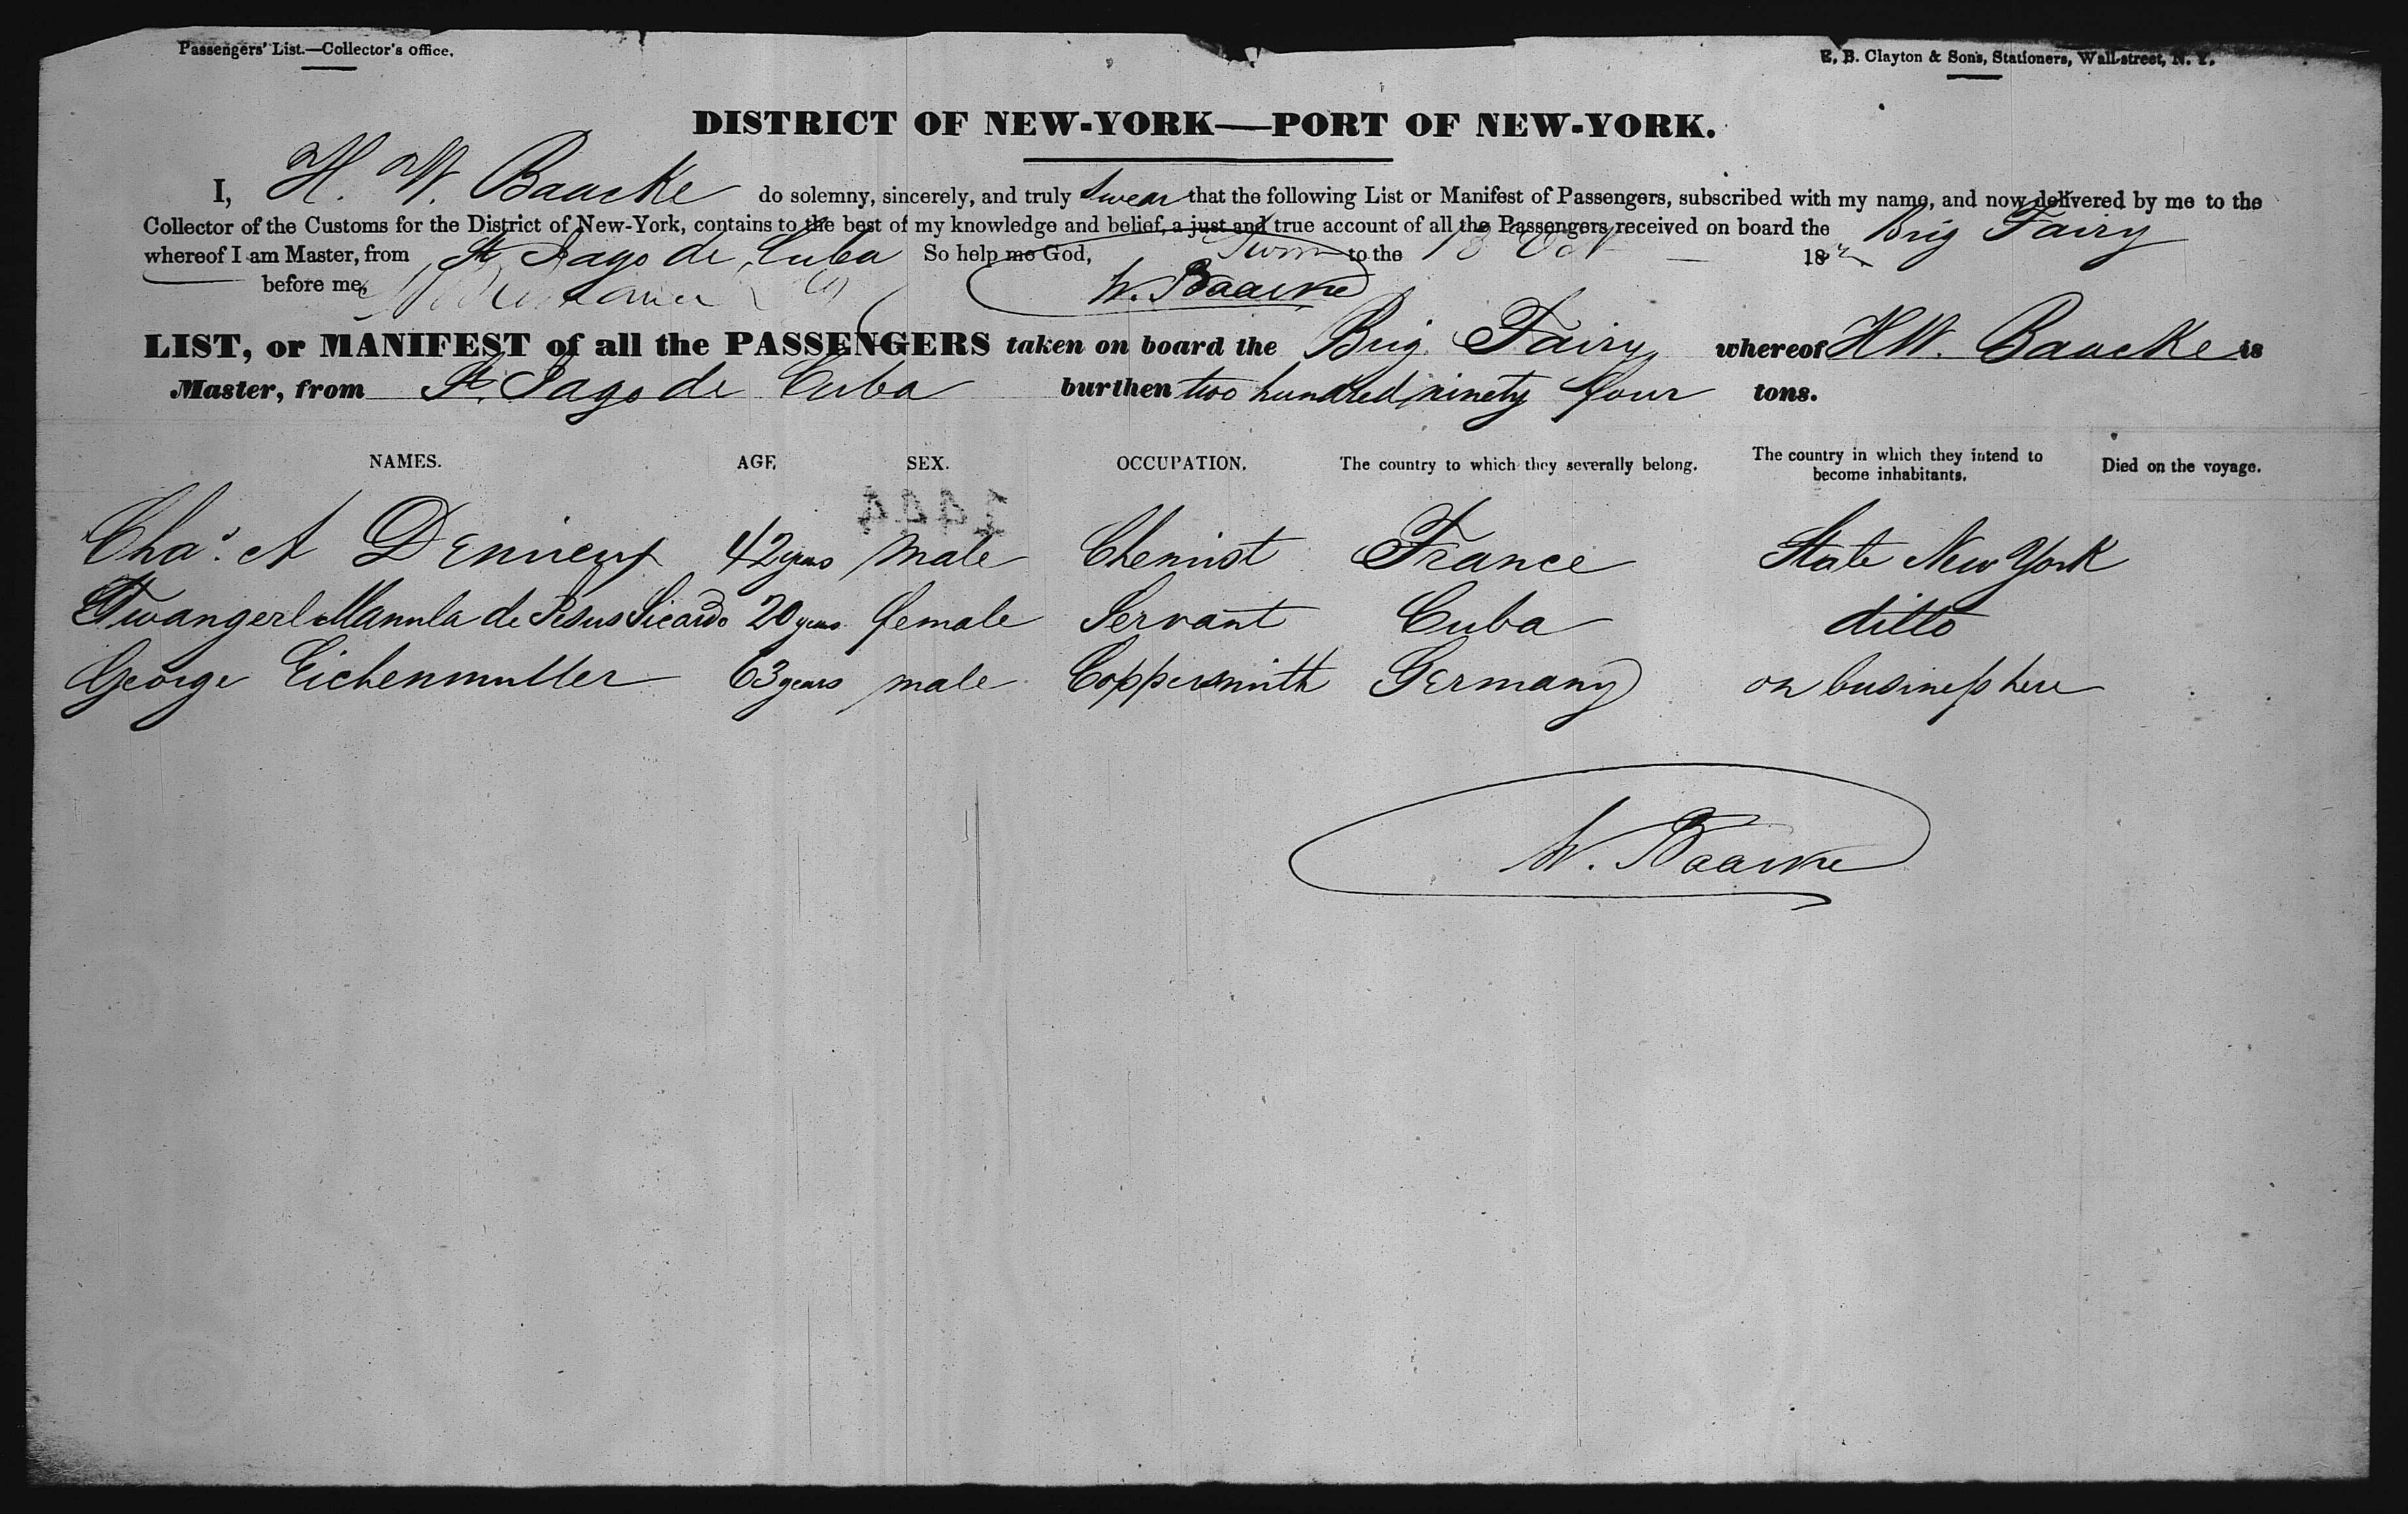 Passengers' List.—Collector's office.
E. B. Clayton & Sons, Stationers, Wall-street, N. Y.
DISTRICT OF NEW-YORK—PORT OF NEW-YORK.
I, H. W. Baacke do solemny, sincerely, and truly swear that the following List or Manifest of Passengers, subscribed with my name, and now delivered by me to the
Collector of the Customs for the District of New-York, contains to the best of my knowledge and belief, a just and true account of all the Passengers received on board the Brig Fairy
whereof I am Master, from St. Jago de Cuba So help me God, Sworn to the 18 Oct 18
before me, W. Baacke
LIST, or MANIFEST of all the PASSENGERS taken on board the Brig Fairy whereof H W. Baacke is
Master, from St. Jago de Cuba burthen two hundred ninety four tons.
NAMES. AGE SEX. OCCUPATION. The country to which they severally belong. The country in which they intend to become inhabitants. Died on the voyage.
1444
Chas. A 42 years male Chemist France State New York
Manula de Jesus Sicardo 20 years female Servant Cuba ditto
George Eichenmuller 63 years male Coppersmith Germany on business here
W. Baacke